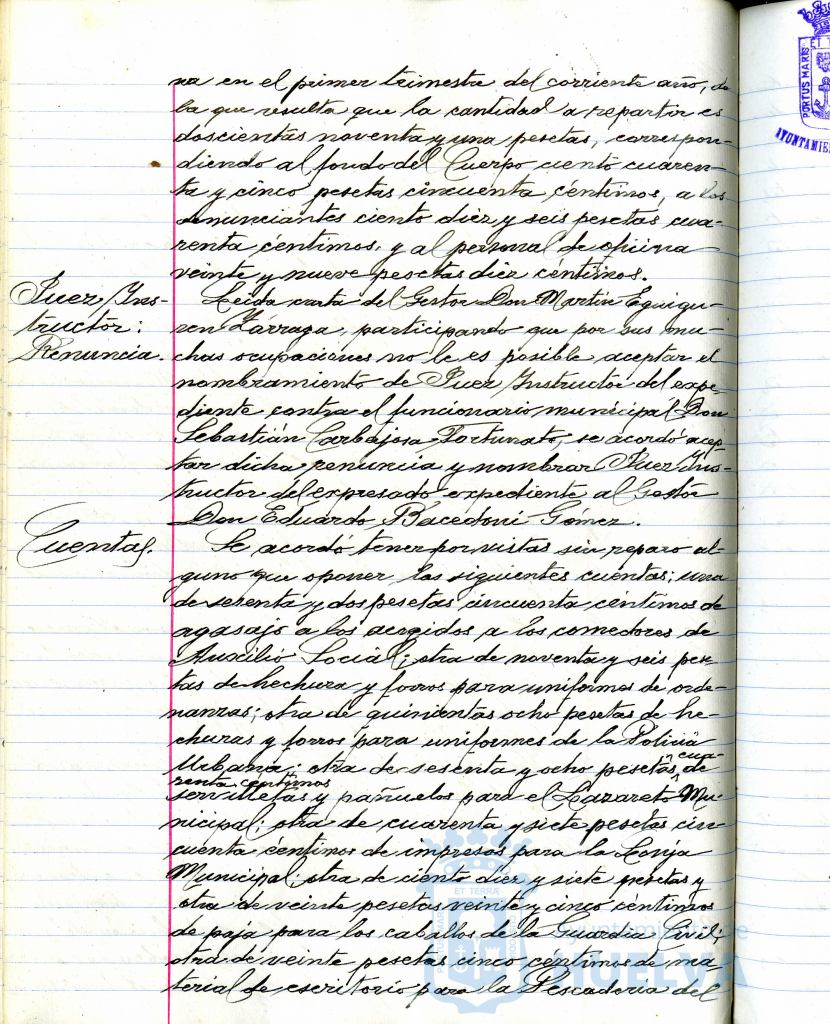 na en el primer trimestre del corriente año, de
la que resulta que la cantidad a repartir es
doscientas noventa y una pesetas, correspon-
diendo al fondo del Cuerpo ciento cuaren-
ta y cinco pesetas cincuenta céntimos, a los
denunciantes ciento diez y seis pesetas cua-
renta céntimos, y al personal de oficina
veinte y nueve pesetas diez céntimos.
Juez Ins-
tructor:
Renuncia.
Leida carta del Gestor Don Martín Eguigu-
ren Zárraga, participando que por sus mu-
chas ocupaciones no le es posible aceptar el
nombramiento de Juez Instructor del expe-
diente contra el funcionario municipal Don
Sebastián Carbajosa Fortunato, se acordó acep-
tar dicha renuncia y nombrar Juez Ins-
tructor del expresado expediente al Gestor
Don Eduardo Bacedoni Gómez.
Cuentas.
Se acordó tener por vistas sin reparo al-
guno que oponer, las siguientes cuentas: una
de setenta y dos pesetas cincuenta céntimos de
agasajo a los acogidos a los comedores de
Auxilio Social; otra de noventa y seis pese-
tas de hechura y forros para uniformes de orde-
nanzas; otra de quinientas ocho pesetas de he-
churas y forros para uniformes de la Policia
Urbana; otra de sesenta y ocho pesetas cua-
renta céntimos de
servilletas y pañuelos para el Lazareto Mu-
nicipal; otra de cuarenta y siete pesetas cin
cuenta céntimos de impresos para la Lonja
Municipal; otra de ciento diez y siete pesetas y
otra de veinte pesetas veinte y cinco céntimos
de paja para los caballos de la Guardia Civil;
otra de veinte pesetas cinco céntimos de ma-
terial de escritorio para la Pescaderia del
PORTUS MARIS
ET TERRA
AYUNTAMIE
Ayuntamiento de
HUELVA